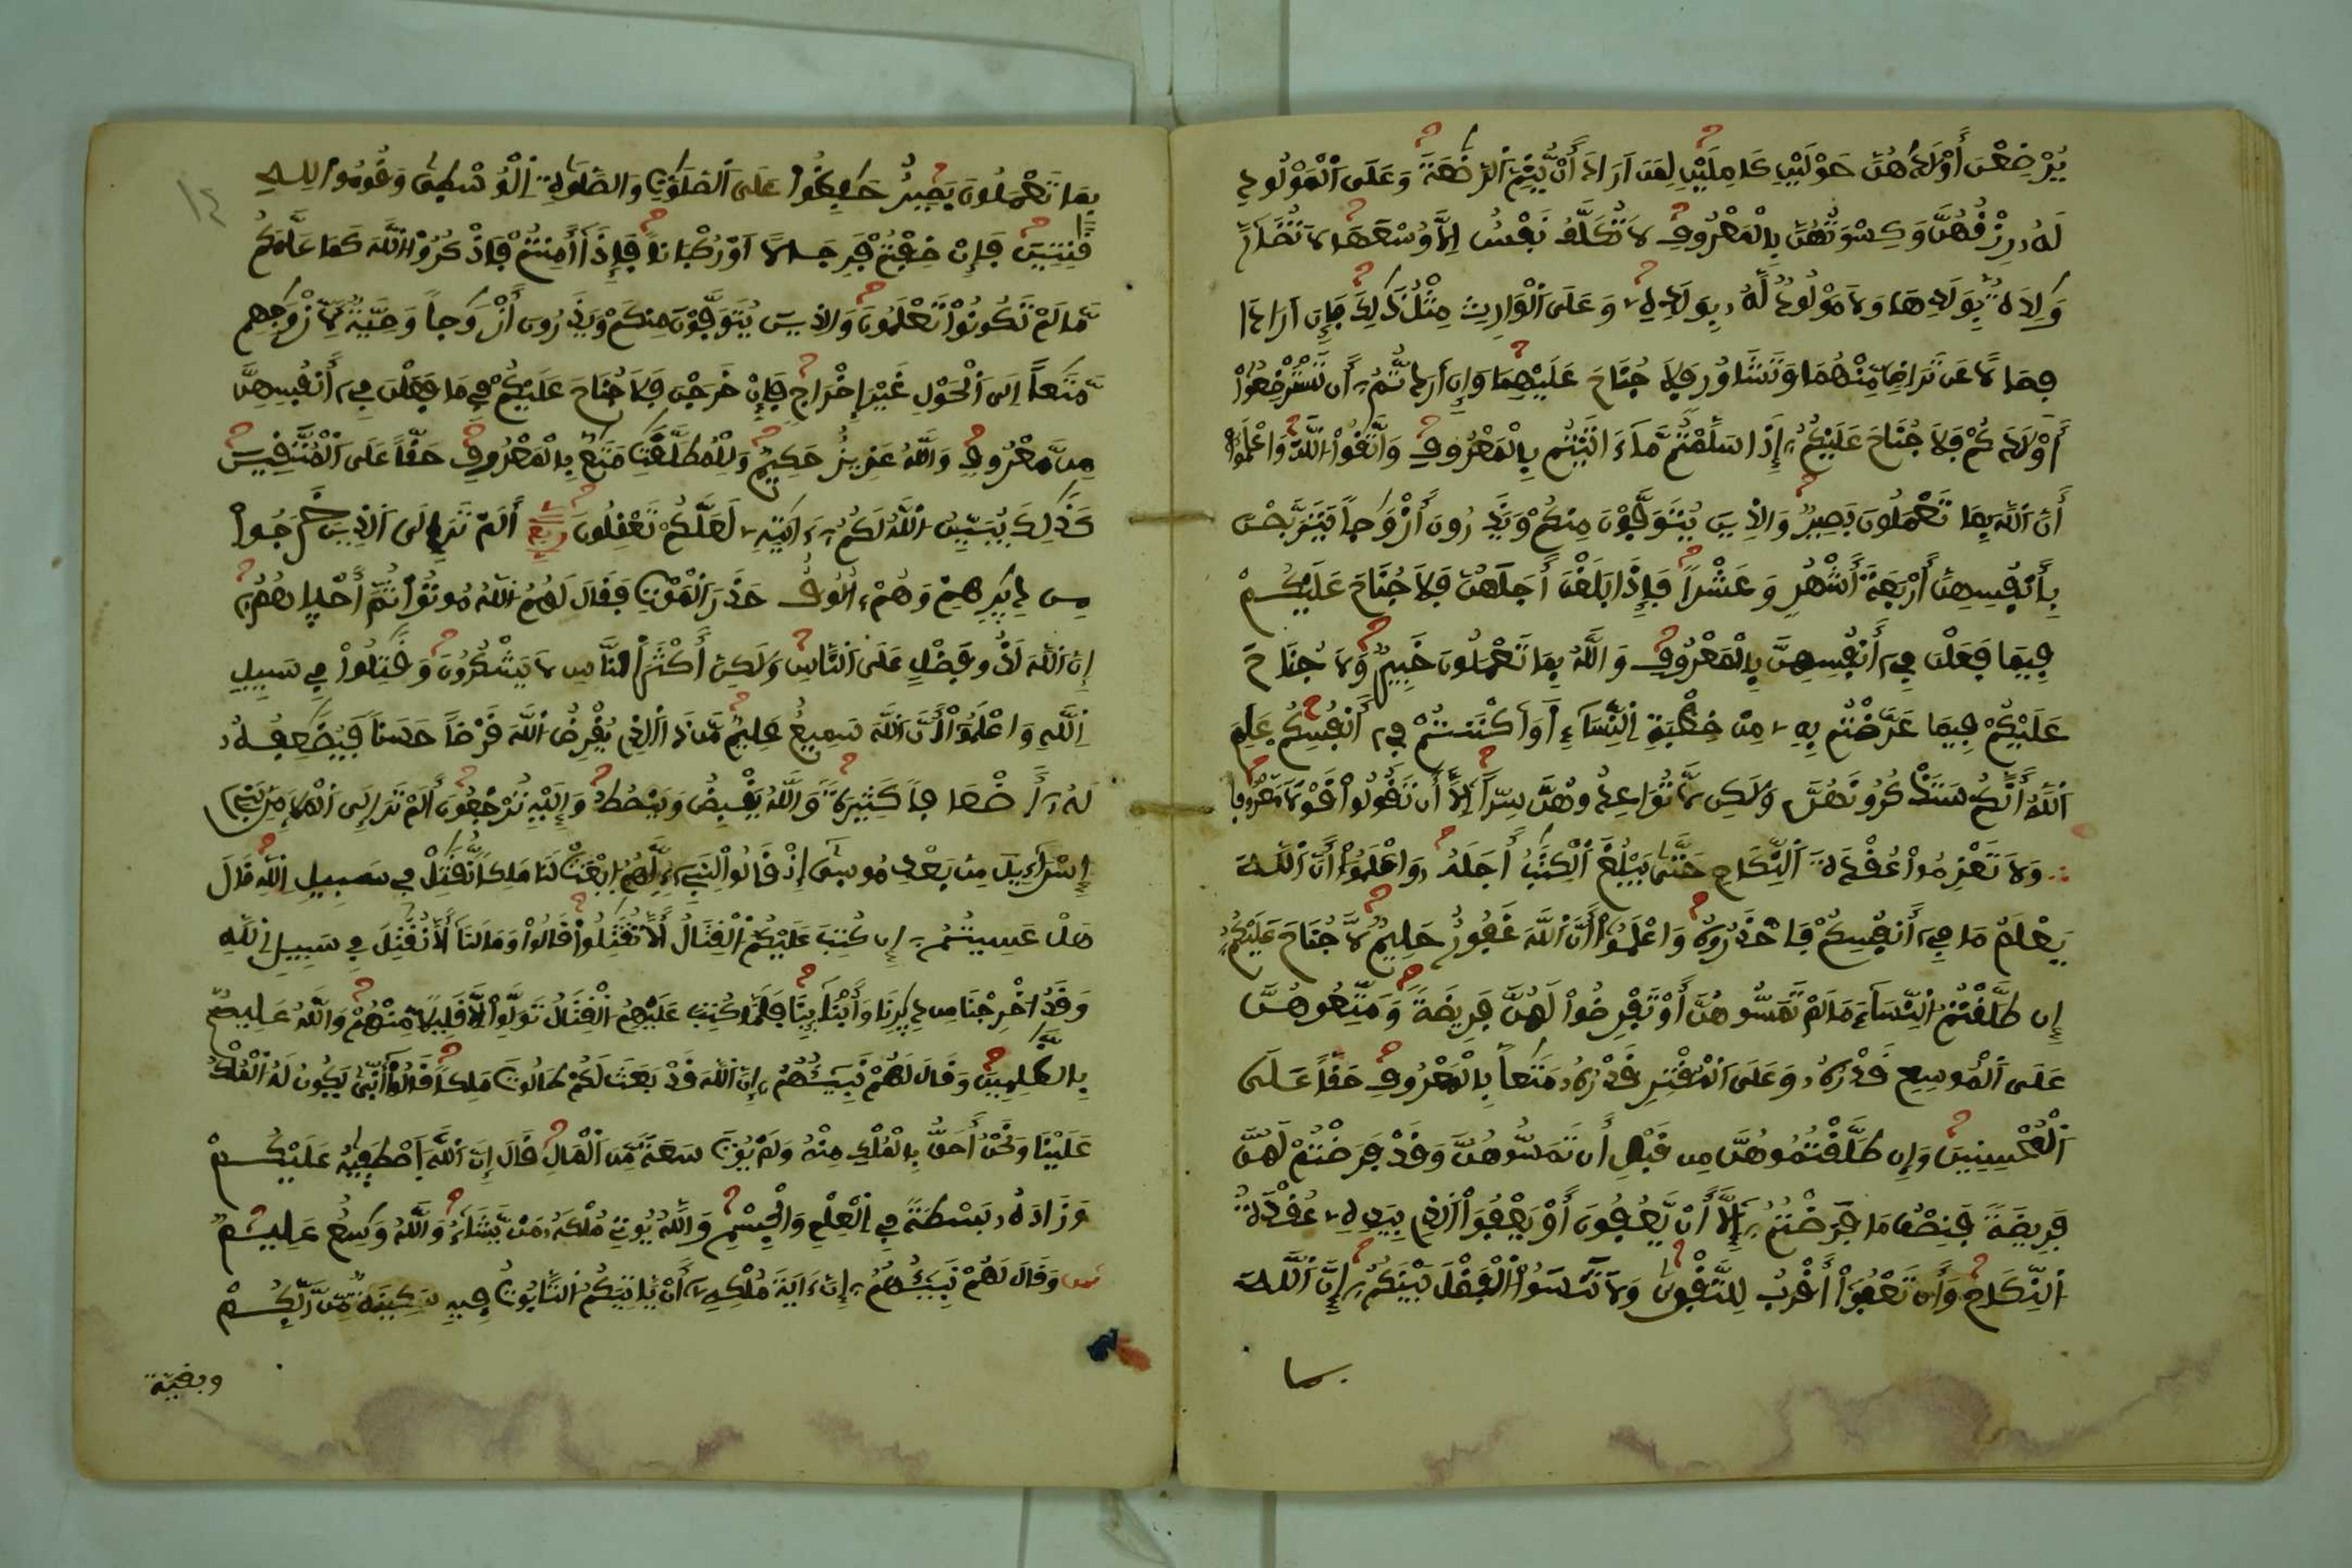 يُرْضِعْنَ أَوْلَٰدَهُنَّ حَوْلَيْنِ كَامِلَيْنِ لِمَنَ اَرَادَ أَنْ يُّتِمَّ اَ۬لرَّضَٰعَةَ وَعَلَى اَ۬لْمَوْلُودِ
لَهُۥ رِزْقُهُنَّ وَكِسْوَتُهُنَّ بِالْمَعْرُوفِ لَا تُكَلَّفُ نَفْسٌ اِلَّا وُسْعَهَا لَا تُضَآرَّ
وَٰلِدَةُۢ بِوَلَدِهَا وَلَا مَوْلُودٞ لَّهُۥ بِوَلَدِهِۦ وَعَلَى اَ۬لْوَارِثِ مِثْلُ ذَٰلِكَ فَإِنَ اَرَادَا
فِصَالًا عَن تَرَاضٖ مِّنْهُمَا وَتَشَاوُرٖ فَلَا جُنَاحَ عَلَيْهِمَا وَإِنَ اَرَدتُّمُۥ أَن تَسْتَرْضِعُوٓاْ
أَوْلَٰدَكُمْ فَلَا جُنَاحَ عَلَيْكُمُۥ إِذَا سَلَّمْتُم مَّآ ءَاتَيْتُم بِالْمَعْرُوفِ وَاتَّقُواْ اُ۬للَّهَ وَاعْلَمُوٓاْ
أَنَّ اَ۬للَّهَ بِمَا تَعْمَلُونَ بَصِيرٞ وَالذِينَ يُتَوَفَّوْنَ مِنكُمْ وَيَذَرُونَ أَزْوَٰجاٗ يَتَرَبَّصْنَ
بِأَنفُسِهِنَّ أَرْبَعَةَ أَشْهُرٖ وَعَشْراٗ فَإِذَا بَلَغْنَ أَجَلَهُنَّ فَلَا جُنَاحَ عَلَيْكُمْ
فِيمَا فَعَلْنَ فِےٓ أَنفُسِهِنَّ بِالْمَعْرُوفِ وَاللَّهُ بِمَا تَعْمَلُونَ خَبِيرٞ وَلَا جُنَاحَ
عَلَيْكُمْ فِيمَا عَرَّضْتُم بِهِۦ مِنْ خِطْبَةِ اِ۬لنِّسَآءِ اَ۪وَاَكْنَنتُمْ فِےٓ أَنفُسِكُمْ عَلِمَ
اَ۬للَّهُ أَنَّكُمْ سَتَذْكُرُونَهُنَّ وَلَٰكِن لَّا تُوَاعِدُوهُنَّ سِرّاً اِلَّآ أَن تَقُولُواْ قَوْلاٗ مَّعْرُوفاٗ
وَلَا تَعْزِمُواْ عُقْدَةَ اَ۬لنِّكَاحِ حَتَّىٰ يَبْلُغَ اَ۬لْكِتَٰبُ أَجَلَهُۥ وَاعْلَمُوٓاْ أَنَّ اَ۬للَّهَ
يَعْلَمُ مَا فِےٓ أَنفُسِكُمْ فَاحْذَرُوهُ وَاعْلَمُوٓاْ أَنَّ اَ۬للَّهَ غَفُورٌ حَلِيمٞ لَّا جُنَاحَ عَلَيْكُمُۥ
إِن طَلَّقْتُمُ اُ۬لنِّسَآءَ مَا لَمْ تَمَسُّوهُنَّ أَوْ تَفْرِضُواْ لَهُنَّ فَرِيضَةٗ وَمَتِّعُوهُنَّ
عَلَى اَ۬لْمُوسِعِ قَدْرُهُۥ وَعَلَى اَ۬لْمُقْتِرِ قَدْرُهُۥ مَتَٰعاَۢ بِالْمَعْرُوفِ حَقّاً عَلَى
اَ۬لْمُحْسِنِينَ وَإِن طَلَّقْتُمُوهُنَّ مِن قَبْلِ أَن تَمَسُّوهُنَّ وَقَدْ فَرَضْتُمْ لَهُنَّ
فَرِيضَةٗ فَنِصْفُ مَا فَرَضْتُمُۥ إِلَّآ أَنْ يَّعْفُونَ أَوْ يَعْفُوَاْ اَ۬لذِے بِيَدِهِۦ عُقْدَةُ
اُ۬لنِّكَاحِ وَأَن تَعْفُوٓاْ أَقْرَبُ لِلتَّقْوَىٰ وَلَا تَنسَوُاْ اُ۬لْفَضْلَ بَيْنَكُمُۥ إِنَّ اَ۬للَّهَ
بما
بِمَا تَعْمَلُونَ بَصِيرٌ حَٰفِظُواْ عَلَى اَ۬لصَّلَوَٰتِ وَالصَّلَوٰةِ اِ۬لْوُسْطَىٰ وَقُومُواْ لِلهِ
قَٰنِتِينَ فَإِنْ خِفْتُمْ فَرِجَالاً اَوْ رُكْبَاناٗ فَإِذَآ أَمِنتُمْ فَاذْكُرُواْ اُ۬للَّهَ كَمَا عَلَّمَكُم
مَّا لَمْ تَكُونُواْ تَعْلَمُونَ وَالذِينَ يُتَوَفَّوْنَ مِنكُمْ وَيَذَرُونَ أَزْوَٰجاٗ وَصِيَّةٞ لِّأَزْوَٰجِهِم
مَّتَٰعاً اِلَى اَ۬لْحَوْلِ غَيْرَ إِخْرَاجٖ فَإِنْ خَرَجْنَ فَلَا جُنَاحَ عَلَيْكُمْ فِے مَا فَعَلْنَ فِےٓ أَنفُسِهِنَّ
مِن مَّعْرُوفٖ وَاللَّهُ عَزِيزٌ حَكِيمٞ وَلِلْمُطَلَّقَٰتِ مَتَٰعُۢ بِالْمَعْرُوفِ حَقّاً عَلَى اَ۬لْمُتَّقِينَ
كَذَٰلِكَ يُبَيِّنُ اُ۬للَّهُ لَكُمُۥٓ ءَايَٰتِهِۦ لَعَلَّكُمْ تَعْقِلُونَ ربع أَلَمْ تَرَ إِلَى اَ۬لذِينَ خَرَجُواْ
مِن دِيَٰرِهِمْ وَهُمُۥٓ أُلُوفٌ حَذَرَ اَ۬لْمَوْتِ فَقَالَ لَهُمُ اُ۬للَّهُ مُوتُواْ ثُمَّ أَحْيَٰهُمُۥٓ
إِنَّ اَ۬للَّهَ لَذُو فَضْلٍ عَلَى اَ۬لنَّاسِ وَلَٰكِنَّ أَكْثَرَ اَ۬لنَّاسِ لَا يَشْكُرُونَ وَقَٰتِلُواْ فِے سَبِيلِ
اِ۬للَّهِ وَاعْلَمُوٓاْ أَنَّ اَ۬للَّهَ سَمِيعٌ عَلِيمٞ مَّن ذَا اَ۬لذِے يُقْرِضُ اُ۬للَّهَ قَرْضاً حَسَناٗ فَيُضَٰعِفُهُۥ
لَهُۥٓ أَضْعَافاٗ كَثِيرَةٗ وَاللَّهُ يَقْبِضُ وَيَبْصُۜطُ وَإِلَيْهِ تُرْجَعُونَ أَلَمْ تَرَ إِلَى اَ۬لْمَلَإِ مِنۢ بَنِےٓ
إِسْرَآءِيلَ مِنۢ بَعْدِ مُوسَىٰٓ إِذْ قَالُواْ لِنَبِےٓءٖ لَّهُمُ اُ۪بْعَثْ لَنَا مَلِكاٗ نُّقَٰتِلْ فِے سَبِيلِ اِ۬للَّهِ قَالَ
هَلْ عَسِيتُمُۥٓ إِن كُتِبَ عَلَيْكُمُ اُ۬لْقِتَالُ أَلَّا تُقَٰتِلُواْ قَالُواْ وَمَا لَنَآ أَلَّا نُقَٰتِلَ فِے سَبِيلِ اِ۬للَّهِ
وَقَدُ اخْرِجْنَا مِن دِيَٰرِنَا وَأَبْنَآئِنَا فَلَمَّا كُتِبَ عَلَيْهِمُ اُ۬لْقِتَالُ تَوَلَّوِاْ اِلَّا قَلِيلاٗ مِّنْهُمْ وَاللَّهُ عَلِيمُۢ
بِالظَّٰلِمِينَ وَقَالَ لَهُمْ نَبِيٓـُٔهُمُۥٓ إِنَّ اَ۬للَّهَ قَدْ بَعَثَ لَكُمْ طَالُوتَ مَلِكاٗ قَالُوٓاْ أَنَّىٰ يَكُونُ لَهُ اُ۬لْمُلْكُ
عَلَيْنَا وَنَحْنُ أَحَقُّ بِالْمُلْكِ مِنْهُ وَلَمْ يُوتَ سَعَةٗ مِّنَ اَ۬لْمَالِ قَالَ إِنَّ اَ۬للَّهَ اَ۪صْطَفَيٰهُ عَلَيْكُمْ
وَزَادَهُۥ بَسْطَةٗ فِے اِ۬لْعِلْمِ وَالْجِسْمِ وَاللَّهُ يُوتِے مُلْكَهُۥ مَنْ يَّشَآءُ وَاللَّهُ وَٰسِعٌ عَلِيمٞ
ثمن وَقَالَ لَهُمْ نَبِيٓـُٔهُمُۥٓ إِنَّ ءَايَةَ مُلْكِهِۦٓ أَنْ يَّاتِيَكُمُ اُ۬لتَّابُوتُ فِيهِ سَكِينَةٞ مِّن رَّبِّكُمْ
وبقية